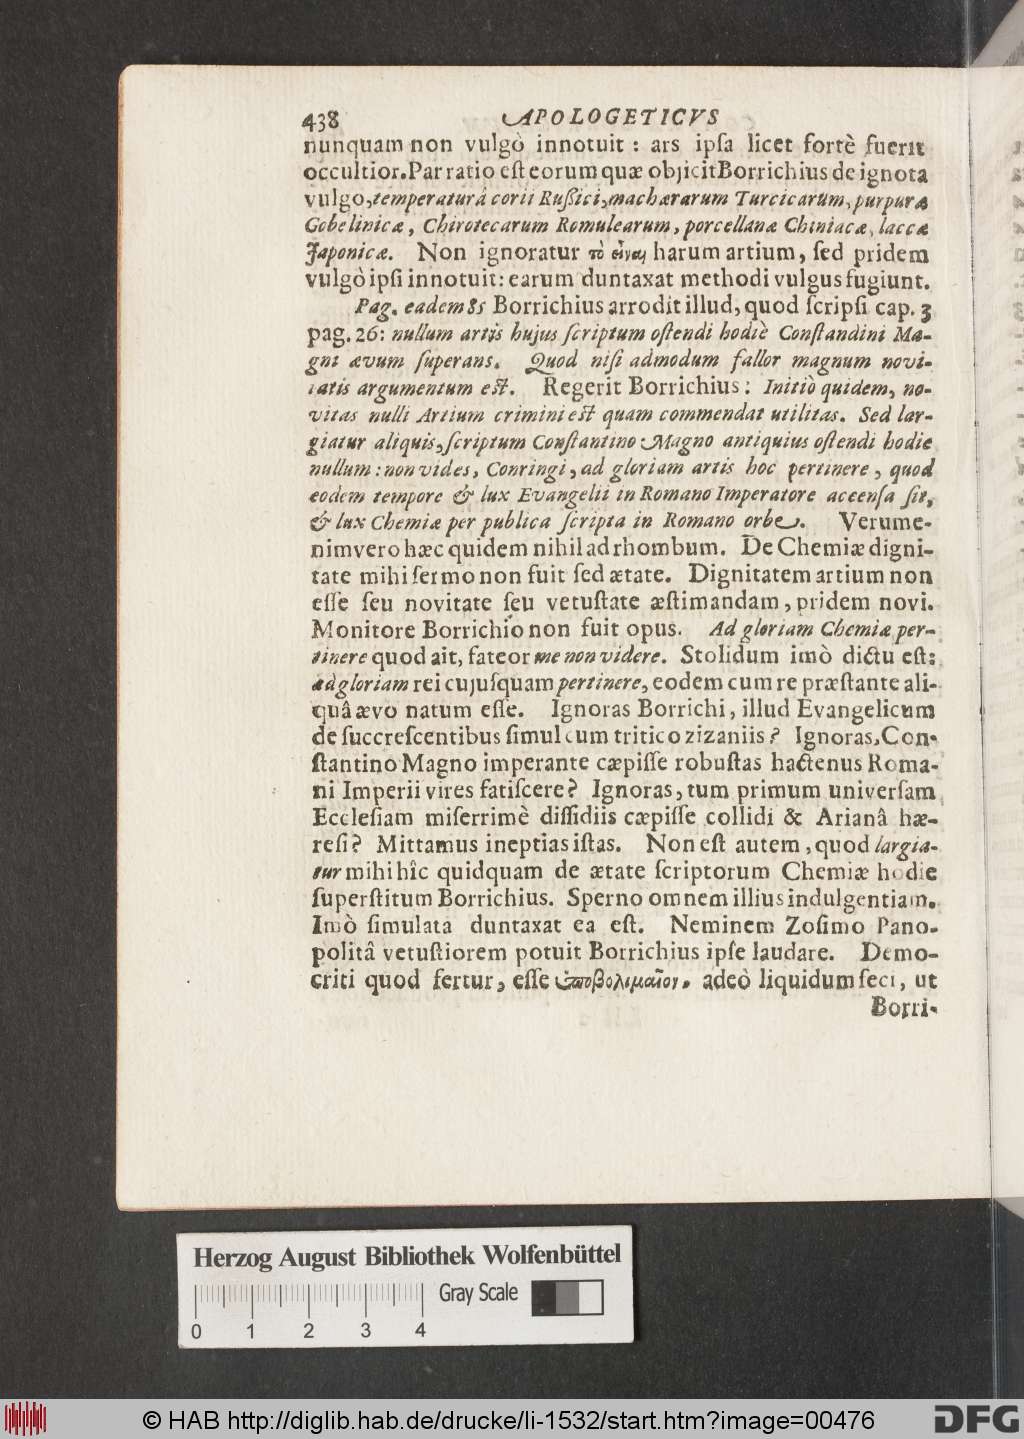 438 APOLOGETICVS
nunquam non vulgò innotuit : ars ipſa licet fortè fuerit
occultior. Par ratio eſt eorum quæ objicit Borrichius de ignota
vulgo, temperaturâ corii Ruſſici, machærarum Turcicarum, purpuræ
Gobelinicæ, Chirotecarum Romulearum, porcellanæ Chiniacæ, laccæ
Japonicæ. Non ignoratur τὸ εἶναι harum artium, ſed pridem
vulgò ipſi innotuit: earum duntaxat methodi vulgus fugiunt.
Pag. eadem 85 Borrichius arrodit illud, quod ſcripſi cap. 3
pag. 26: nullum artis hujus ſcriptum oſtendi hodiè Conſtandini Ma-
gni ævum ſuperans. Quod niſi admodum fallor magnum novi-
tatis argumentum eſt. Regerit Borrichius: Initiò quidem, no-
vitas nulli Artium crimini eſt quam commendat utilitas. Sed lar-
giatur aliquis, ſcriptum Conſtantino Magno antiquius oſtendi hodie
nullum: non vides, Conringi, ad gloriam artis hoc pertinere, quod
eodem tempore & lux Evangelii in Romano Imperatore accenſa ſit,
& lux Chemiæ per publica ſcripta in Romano orbe. Verume-
nimvero hæc quidem nihil ad rhombum. De Chemiæ digni-
tate mihi ſermo non fuit ſed ætate. Dignitatem artium non
eſſe ſeu novitate ſeu vetuſtate æſtimandam, pridem novi.
Monitore Borrichio non fuit opus. Ad gloriam Chemiæ per-
tinere quod ait, fateor me non videre. Stolidum imò dictu eſt:
ad gloriam rei cujuſquam pertinere, eodem cum re præſtante ali-
quâ ævo natum eſſe. Ignoras Borrichi, illud Evangelicum
de ſuccreſcentibus ſimul cum tritico zizaniis? Ignoras, Con-
ſtantino Magno imperante cæpiſſe robuſtas hactenus Roma-
ni Imperii vires fatiſcere? Ignoras, tum primum univerſam
Eccleſiam miſerrimè diſſidiis cæpiſſe collidi & Arianâ hæ-
reſi? Mittamus ineptias iſtas. Non eſt autem, quod largia-
tur mihi hîc quidquam de ætate ſcriptorum Chemiæ hodie
ſuperſtitum Borrichius. Sperno omnem illius indulgentiam.
Imò ſimulata duntaxat ea eſt. Neminem Zoſimo Pano-
politâ vetuſtiorem potuit Borrichius ipſe laudare. Demo-
criti quod fertur, eſſe ὑποβολιμαῖον, adeò liquidum feci, ut
Borri-
Herzog August Bibliothek Wolfenbüttel
Gray Scale
0 1 2 3 4
© HAB http://diglib.hab.de/drucke/li-1532/start.htm?image=00476
DFG